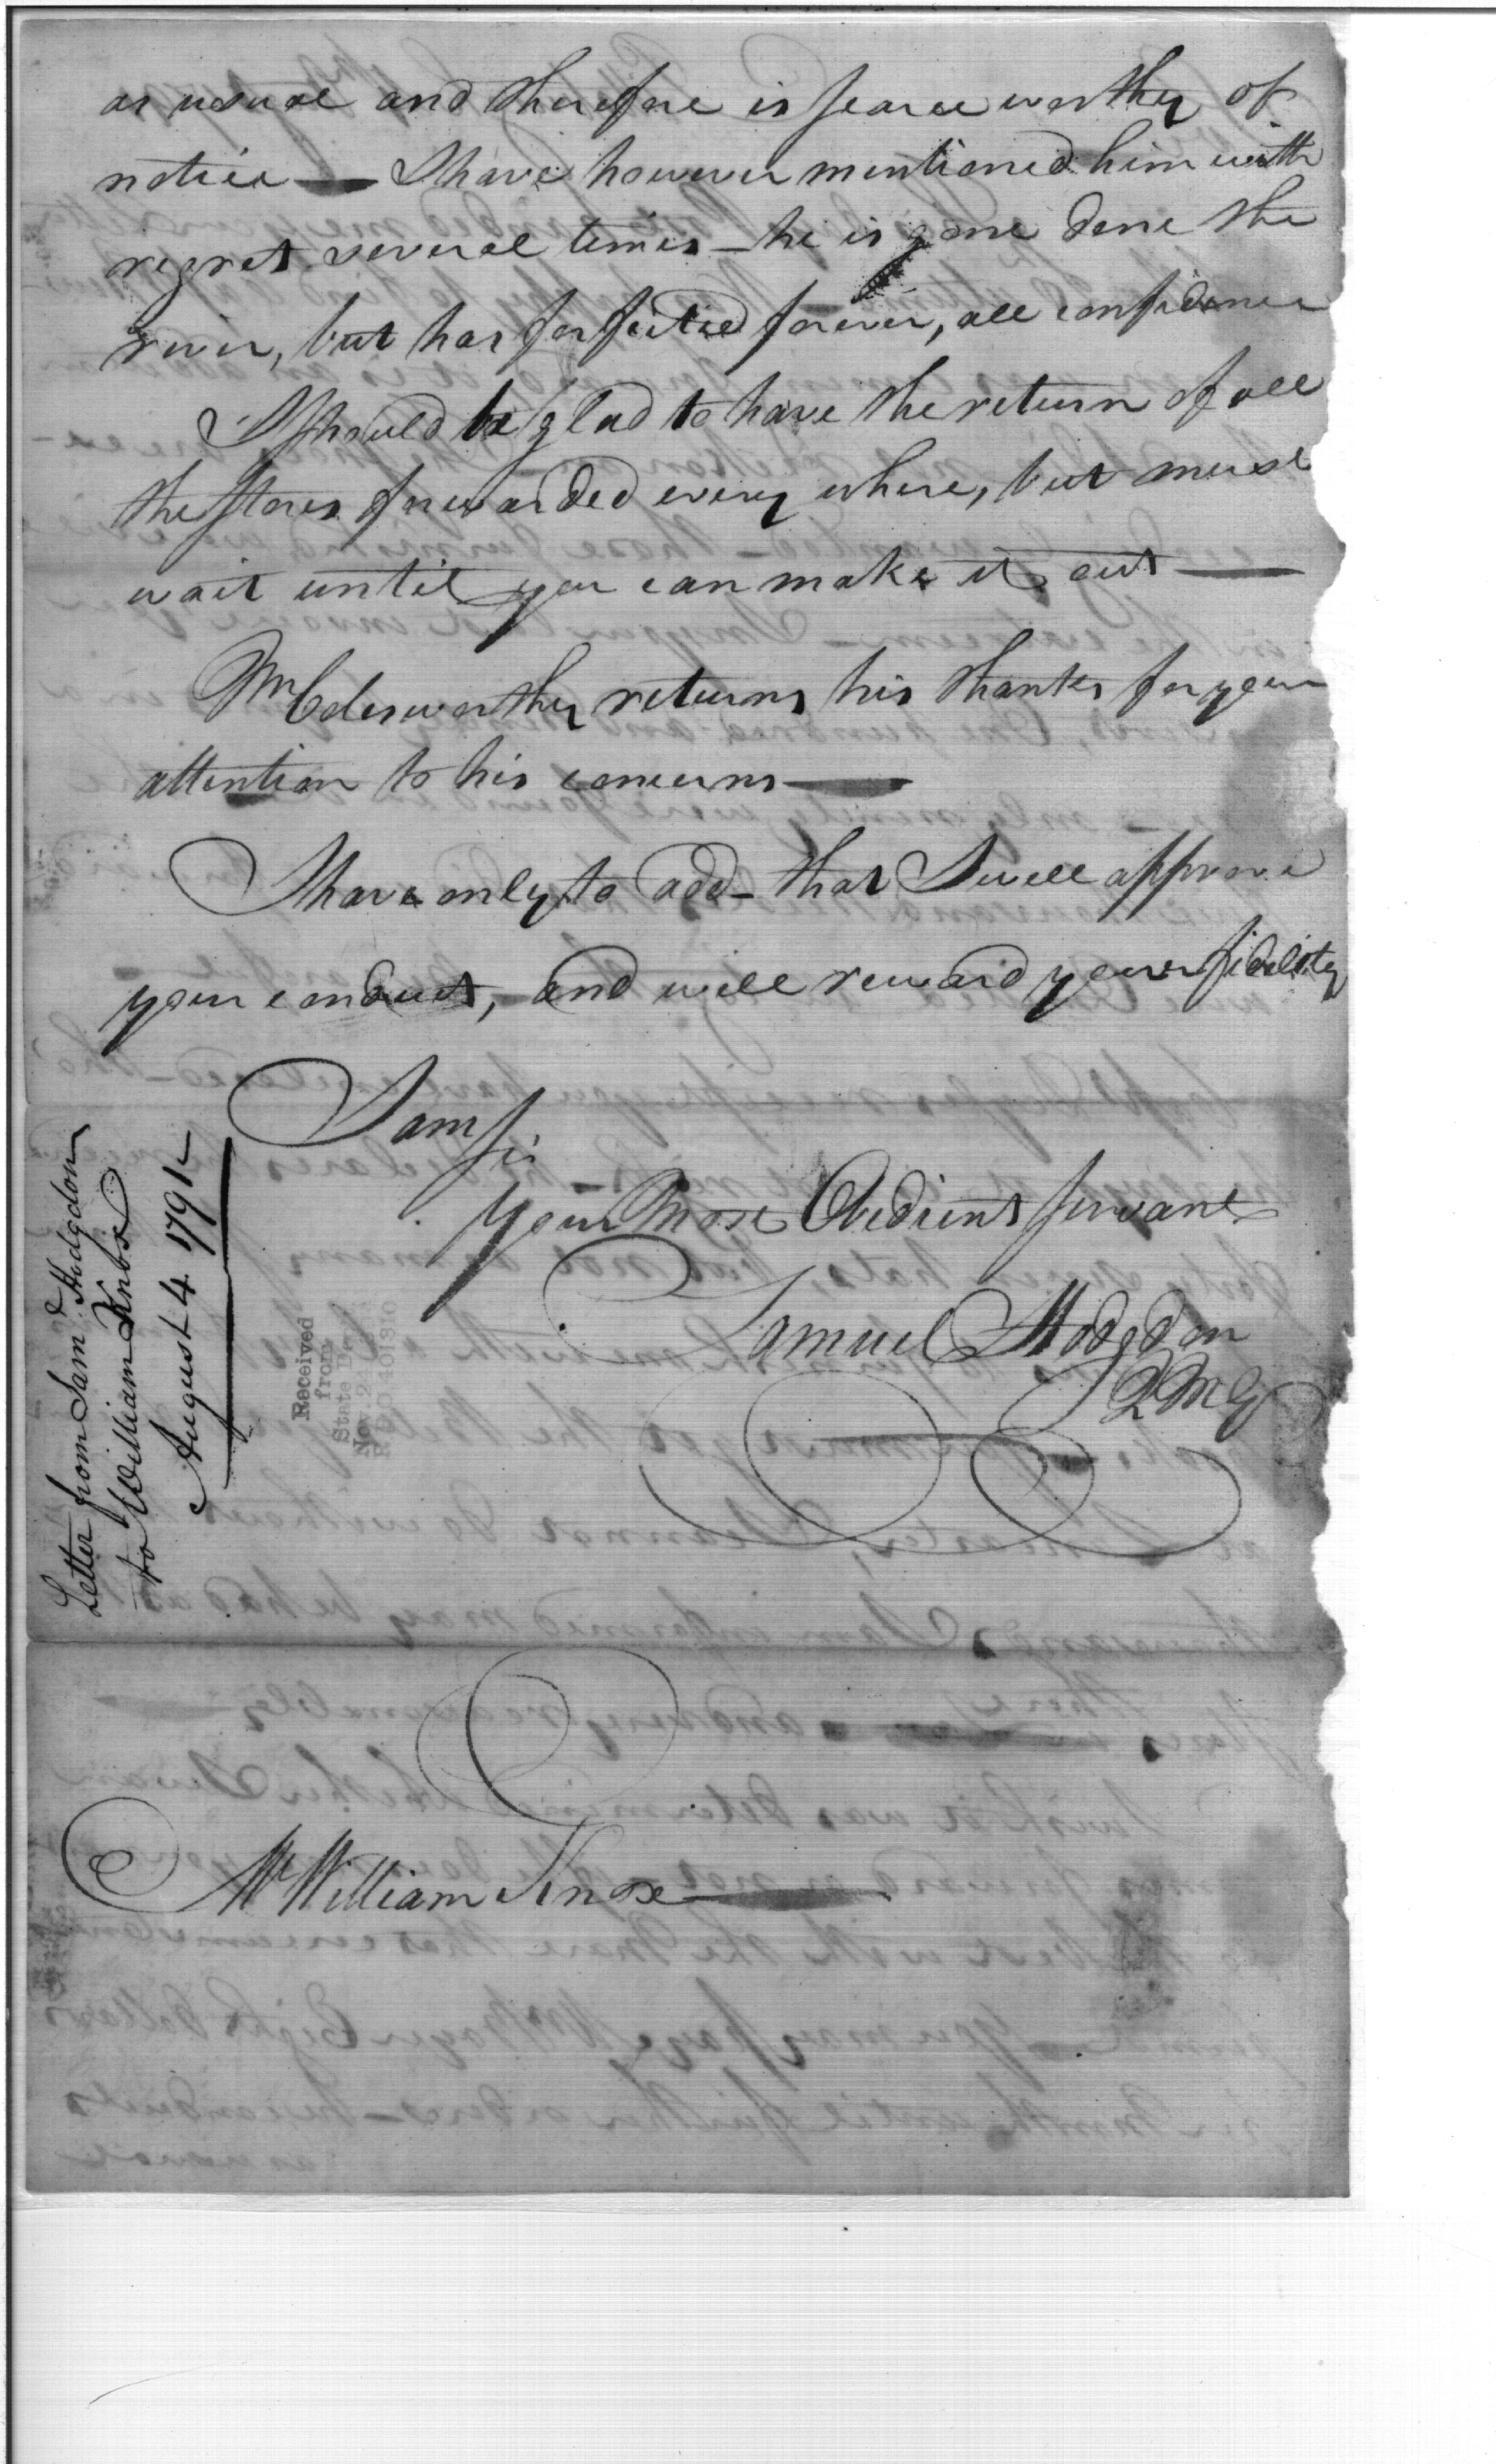 as usual and therefore is scarce worthy of
notice — I have however mentioned him with
regret several times — he is gone done the
River, but has forfeited forever, all confidence
I should be glad to have the return of all
the Stores forwarded every where, but must
wait until you can make it out —
Mr Colesworthy returns his thanks for your
attention to his concerns —
I have only to add — that I well approve
your conduct, and will reward your fidelity
I am Sir
Your Most Obedient Servant
Samuel Hodgdon
QMG
Mr William Knox —
Letter from Saml. Hodgdon
to William Knox
August 4 1791
Received
from
State Dept.
Nov. 24
R & P O 401310